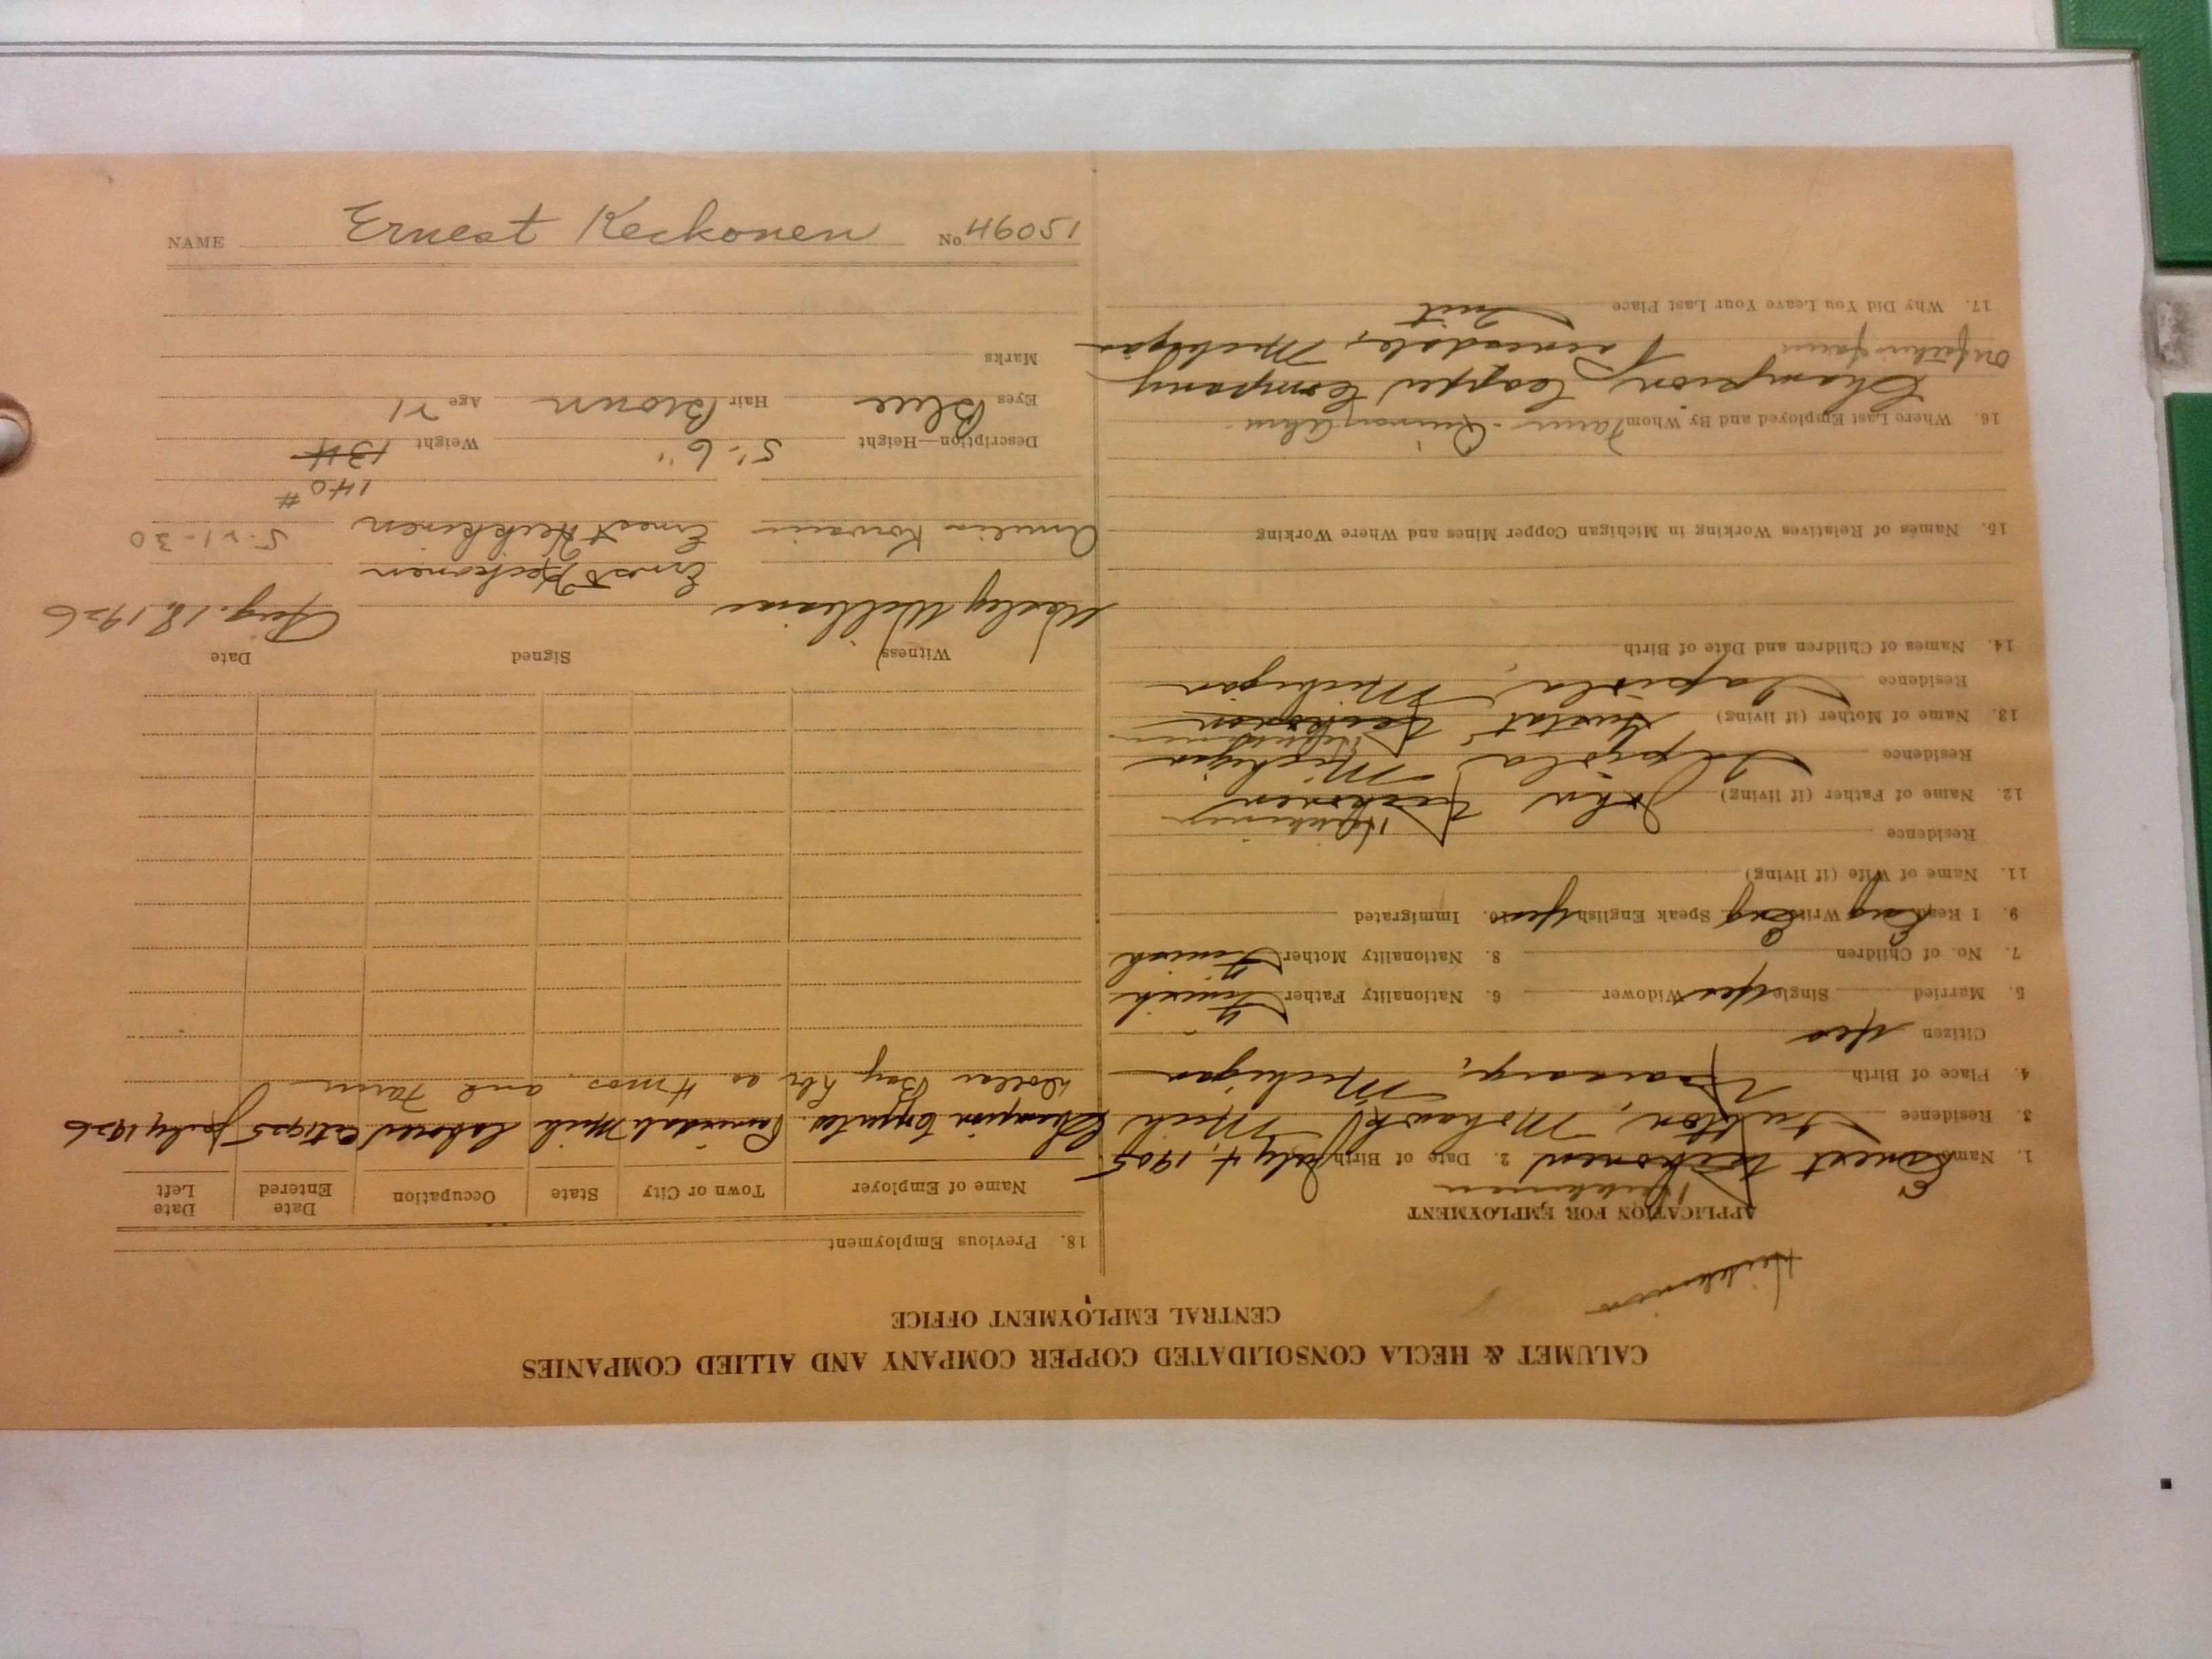 CALUMET & HECLA CONSOLIDATED COPPER COMPANY AND ALLIED COMPANIES
CENTRAL EMPLOYMENT OFFICE
Heikkinen
APPLICATION FOR EMPLOYMENT
Heikkinen
1. Name Ernest Keckonen 2. Date of Birth July 4, 1905
3. Residence Mohawk, Mich
4. Place of Birth Michigan
Citizen Yes
5. Married Single Yes Widower 6. Nationality Father Finish
7. No. of Children 8. Nationality Mother Finish
9. I Read Eng Write Eng Speak English Yes 10. Immigrated
11. Name of Wife (if living)
Residence
Heikkinen
12. Name of Father (if living) John Keckonen
Residence Tapiola, Michigan
Heikkinen
13. Name of Mother (if living) Keckonen
Residence Tapiola, Michigan
14. Names of Children and Date of Birth
15. Names of Relatives Working in Michigan Copper Mines and Where Working
16. Where Last Employed and By Whom Farm
Champion Copper Company
On father's farm Painesdale, Michigan
17. Why Did You Leave Your Last Place Quit
18. Previous Employment
Name of Employer Town or City State Occupation Date Entered Date Left
Champion Copper Co. Painesdale Mich Laborer July 1926
Dollar Bay 4 mos. and Farm
Witness Signed Date
Wesley Williams Ernest Keckonen Aug. 18, 1926
Amelia Ernest Heikkinen 5-21-30
140 #
Description—Height 5'-6" Weight 134
Eyes Blue Hair Brown Age 21
Marks
NAME Ernest Keckonen No. 46051